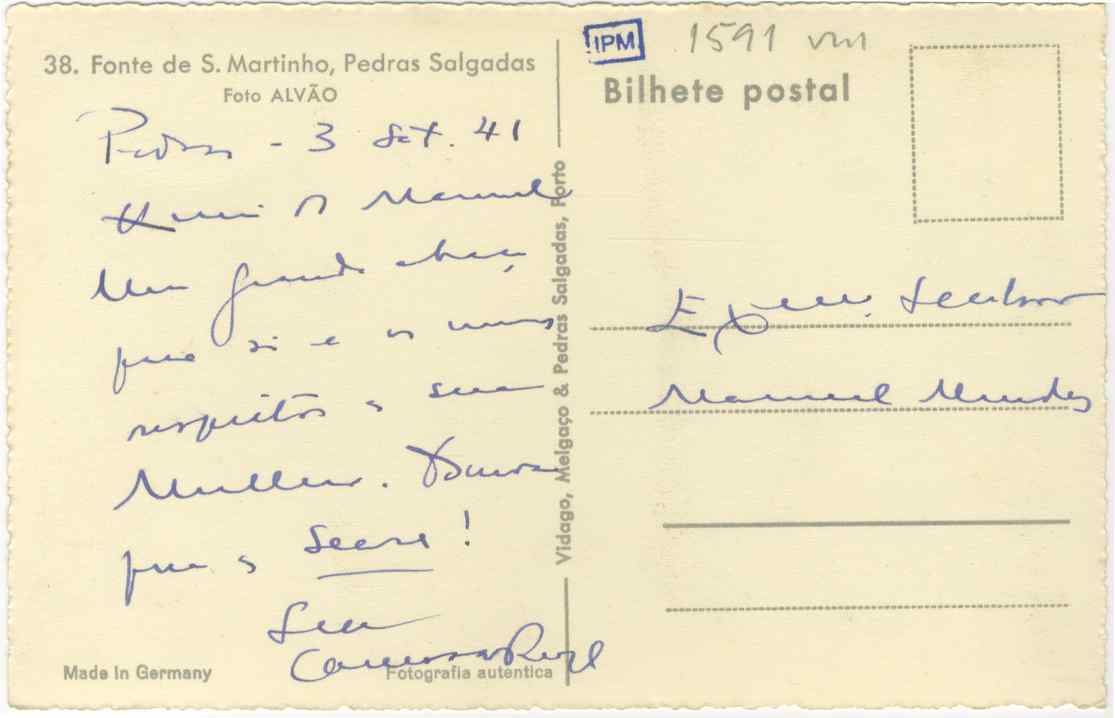 38. Fonte de S. Martinho, Pedras Salgadas
Foto ALVÃO
Pedras - 3 Set. 41
Manuel
Um grande abraço
para si e os meus
respeitos a sua
Mulher.
para a Seara!
Seu
Camara Reys
Made in Germany
Fotografia autentica
Vidago, Melgaço & Pedras Salgadas, Porto
IPM
1591
Bilhete postal
Exmo. Senhor
Manuel Mendes